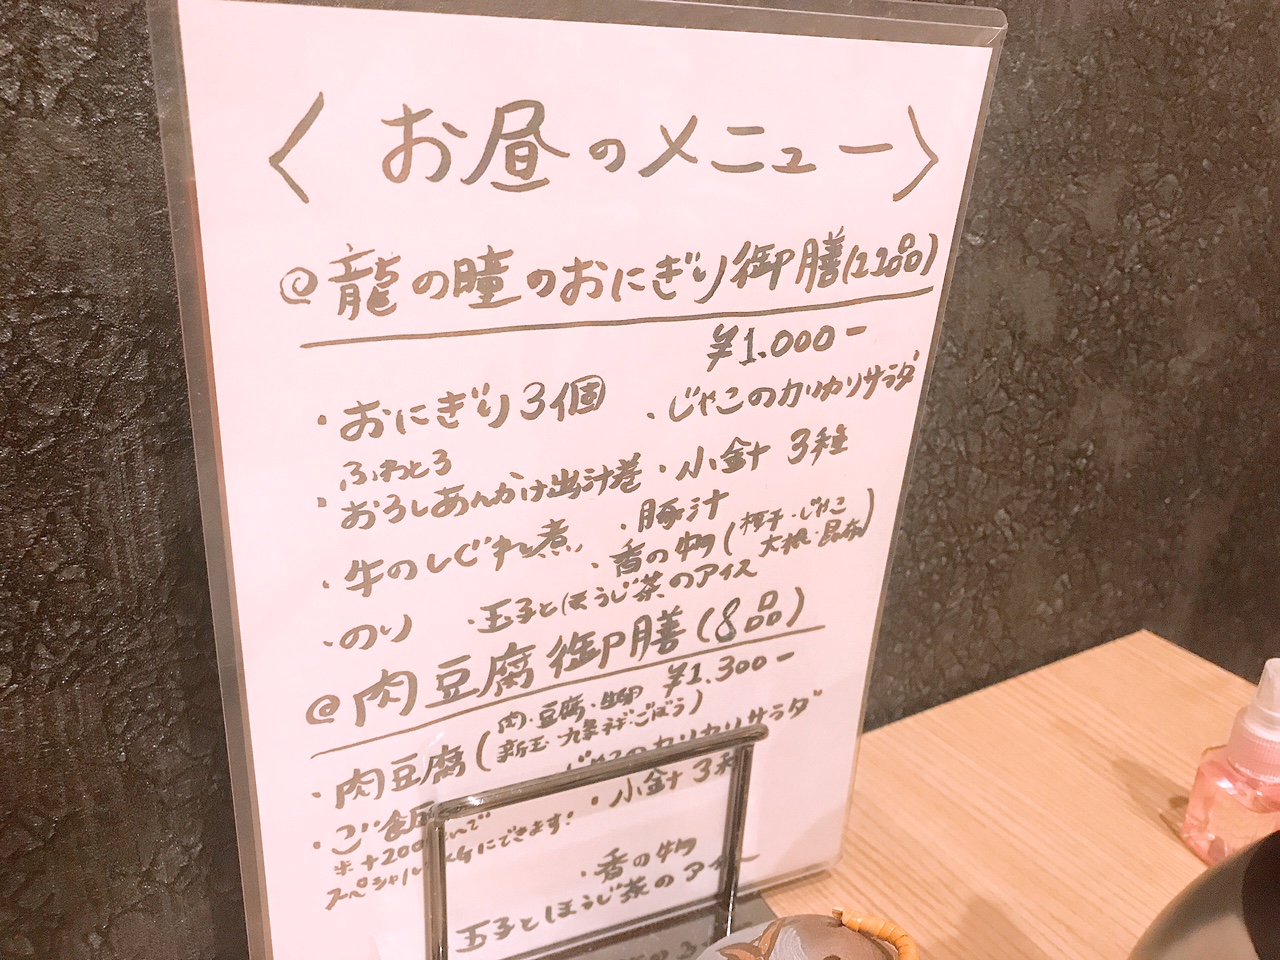 〈お昼のメニュー〉
@龍の瞳のおにぎり御膳(11品)
¥1.000-
・おにぎり3個 ・じゃこのカリカリサラダ
ふわとろ
・おろしあんかけ出汁巻 ・小鉢3種
・牛のしぐれ煮 ・豚汁
・香の物(梅干・じゃこ
大根・昆布)
・のり ・玉子とほうじ茶のアイス
@肉豆腐御膳(8品)
¥1.300-
・肉豆腐(肉・豆腐・生卵
新玉・九条ネギ・ごぼう)
じゃこのカリカリサラダ
・ご飯
・小鉢3種
※+200
にできます!
・香の物
玉子とほうじ茶のアイ